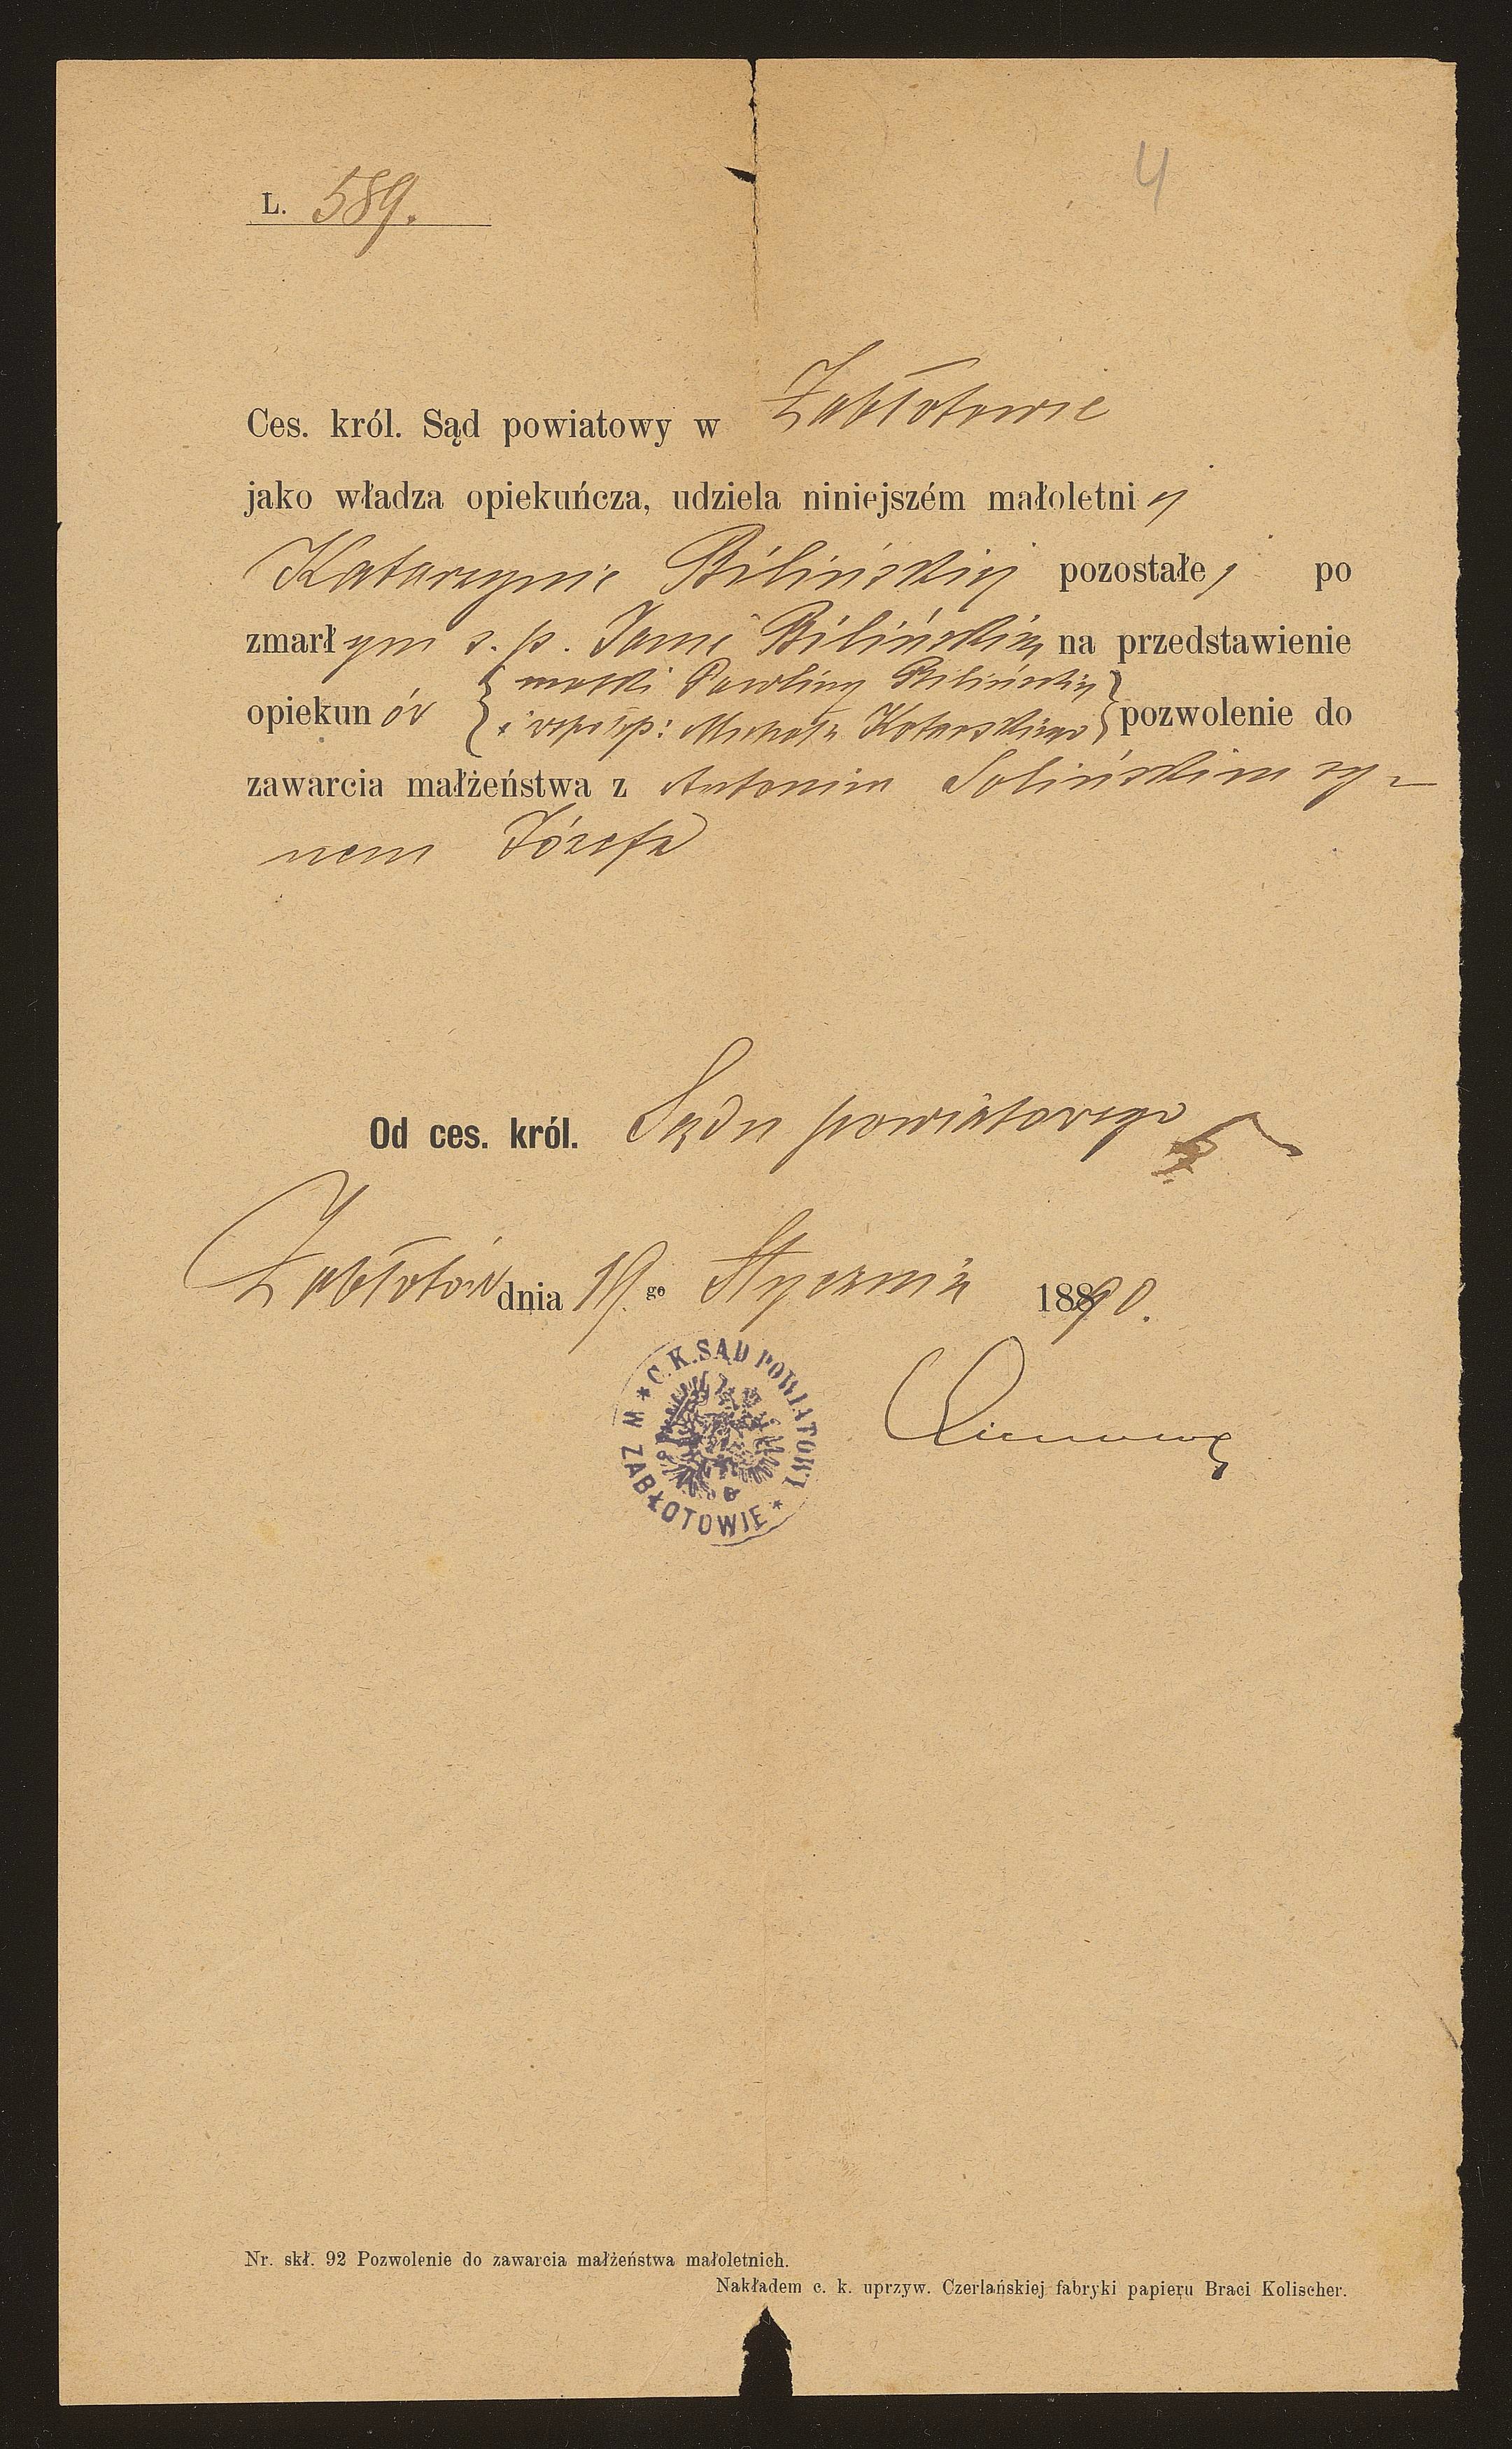 4
L. 589.
Ces. król. Sąd powiatowy w Zabłotowie
jako władza opiekuńcza, udziela niniejszém małoletniej
Katarzynie Bilińskiej pozostałej po
zmarłym ś. p. Janie Bilińskim na przedstawienie
opiekunów { matki Pauliny Bilińskiej
i współop: Michała Kotowskiego } pozwolenie do
zawarcia małżeństwa z Antonim Solińskim sy-
nem Józefa
Od ces. król. Sądu powiatowego
Zabłotów dnia 19. go Stycznia 1890.
* C. K. SĄD POWIATOWY * W ZABŁOTOWIE
Nr. skł. 92 Pozwolenie do zawarcia małżeństwa małoletnich.
Nakładem c. k. uprzyw. Czerlańskiej fabryki papieru Braci Kolischer.